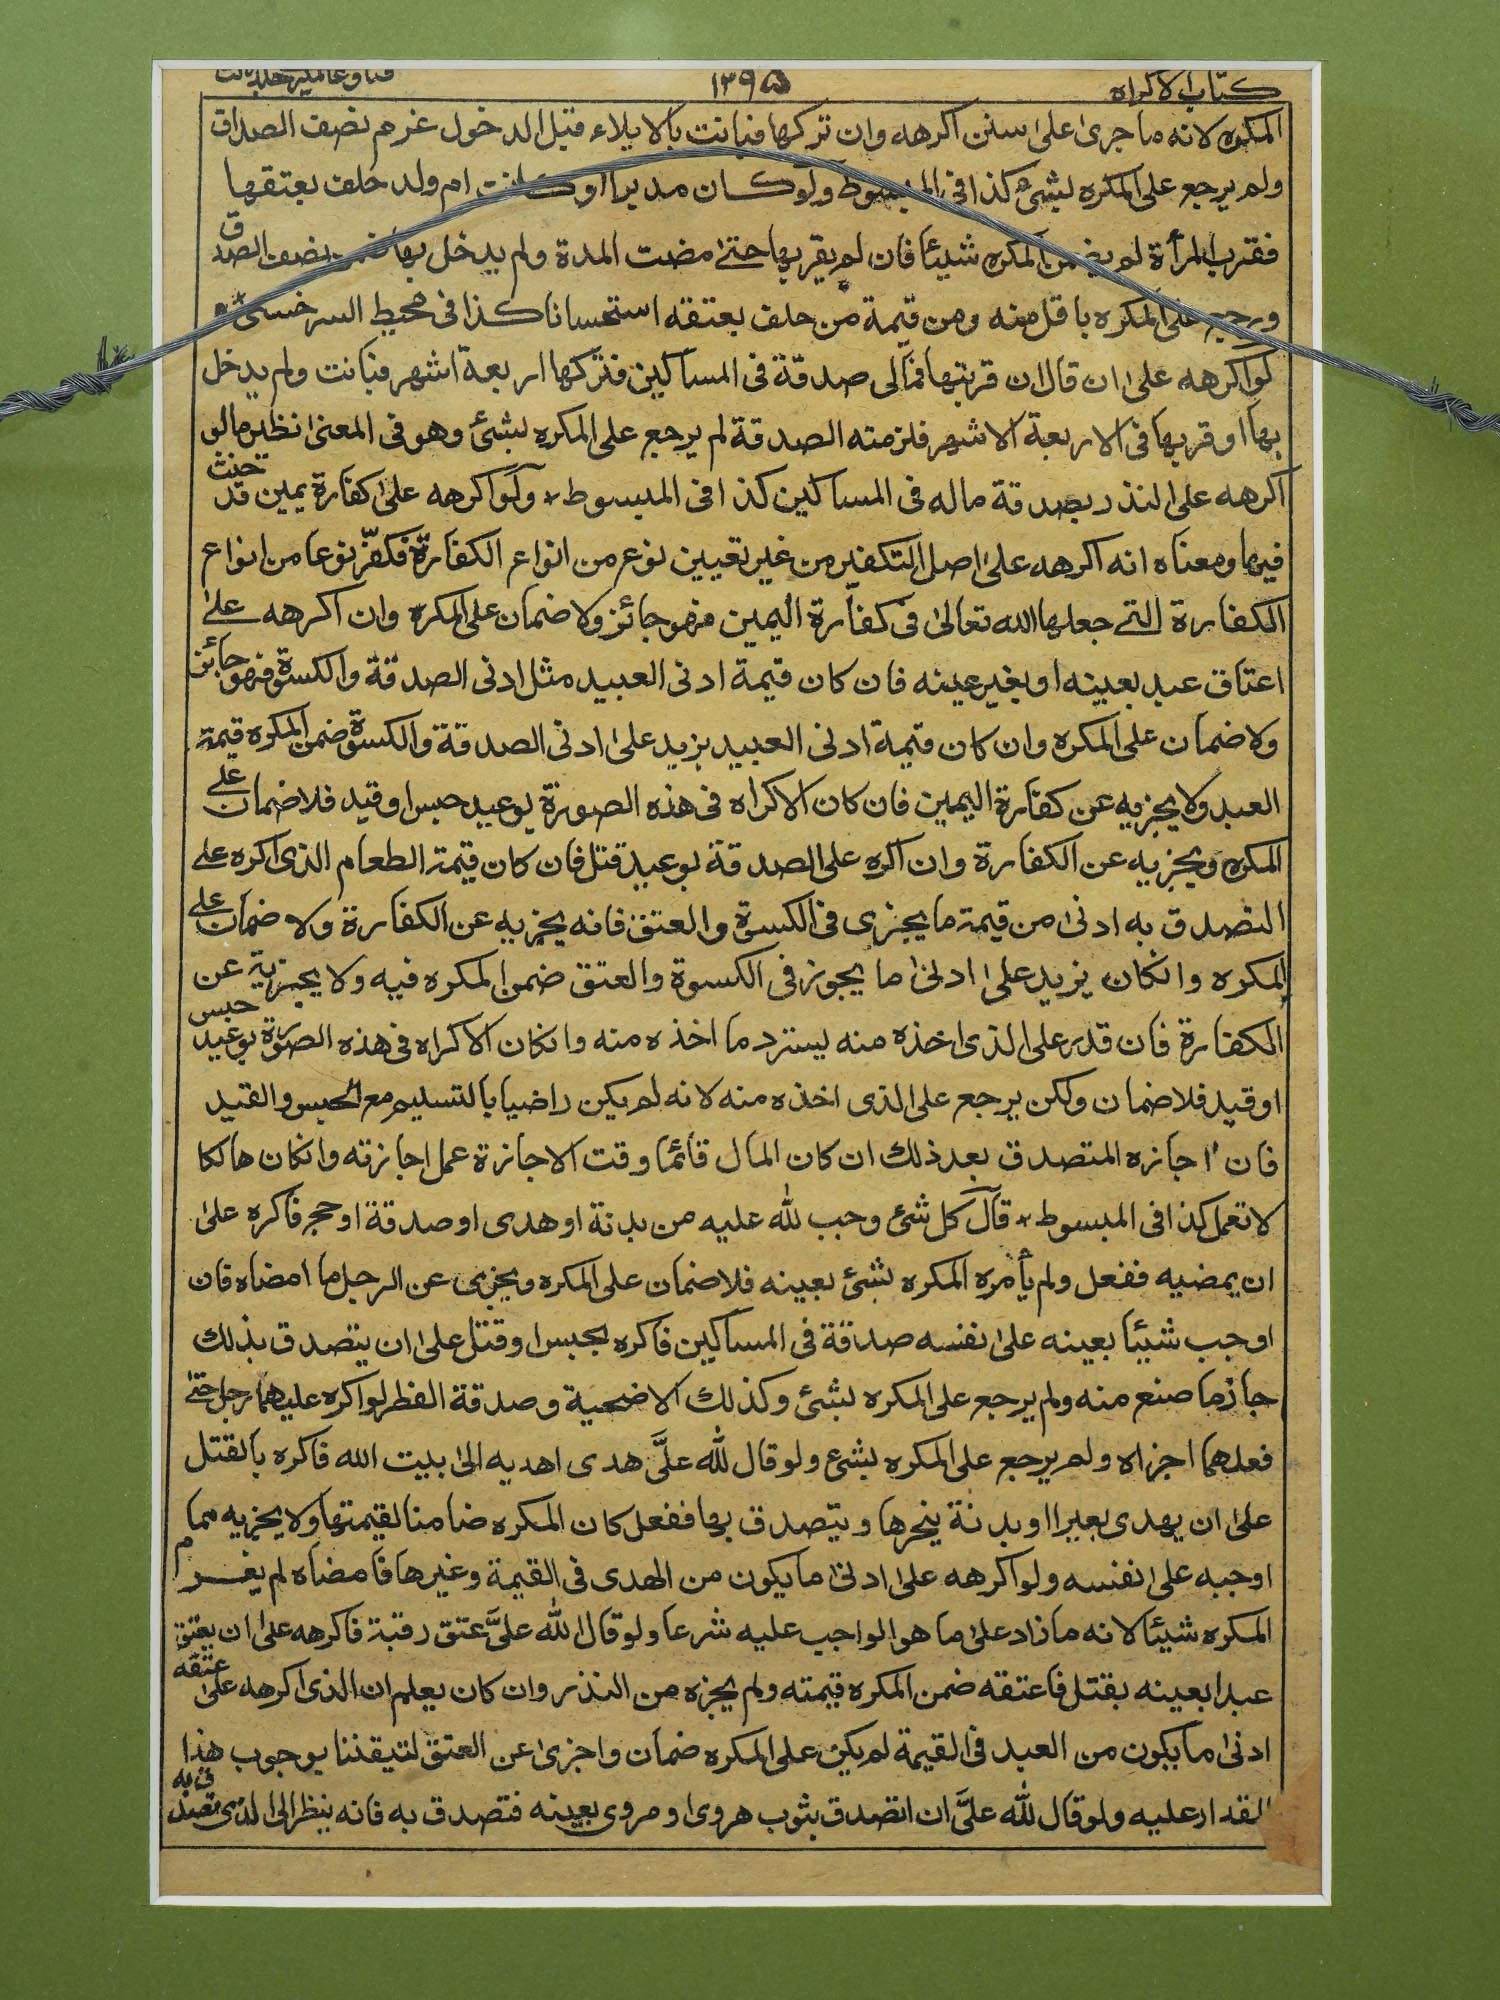 كتاب الاكراه ١٣٩٥ فتاوى عالمگیری جلد ثالث
المكره لانه ما جرى على سنن اكرهه وان تركها فبانت بالايلاء قبل الدخول غرم نصف الصداق
ولم يرجع على المكره بشئ كذا فى المبسوط ولو كان مدبرا او كانت ام ولد حلف بعتقها
فقرب المرأة لم يضمن المكره شيئا فان لم يقربها حتى مضت المدة ولم يدخل بها ضمن نصف الصداق
ورجع على المكره باقل منه ومن قيمة من حلف بعتقه استحسانا كذا فى محيط السرخسى*
لو اكرهه على ان قال ان قربتها فمالى صدقة فى المساكين فتركها اربعة اشهر فبانت ولم يدخل
بها او قربها فى الاربعة الاشهر فلزمته الصدقة لم يرجع على المكره بشئ وهو فى المعنى نظير ما لو
اكرهه على النذر بصدقة ماله فى المساكين كذا فى المبسوط * ولو اكرهه على كفارة يمين قد حنث
فيها ومعناه انه اكرهه على اصل التكفير من غير تعيين نوع من انواع الكفارة فكفّر نوعا من انواع
الكفارة التے جعلها الله تعالى فى كفارة اليمين فهو جائز ولا ضمان على المكره وان اكرهه علے
اعتاق عبد بعينه او بغير عينه فان كان قيمة ادنى العبيد مثل ادنى الصدقة والكسوة فهو جائز
ولا ضمان على المكره وان كان قيمة ادنى العبيد يزيد على ادنى الصدقة والكسوة ضمن المكره قيمة
العبد ولا يجزيه عن كفارة اليمين فان كان الاكراه فى هذه الصورة بوعيد حبس او قيد فلا ضمان علے
المكره ويجزيه عن الكفارة وان اكره على الصدقة بوعيد قتل فان كان قيمة الطعام الذى اكره علے
التصدق به ادنى من قيمة ما يجزى فى الكسوة والعتق فانه يجزيه عن الكفارة ولا ضمان علے
المكره وانكان يزيد على ادنى ما يجوز فى الكسوة والعتق ضمن المكره فيه ولا يجزيه عن
الكفارة فان قدر على الذى اخذه منه يسترد ما اخذه منه وانكان الاكراه فى هذه الصورة بوعيد حبس
او قيد فلا ضمان ولكن يرجع على الذى اخذه منه لانه لم يكن راضيا بالتسليم مع الحبس والقيد
فان اجازه المتصدق بعد ذلك ان كان المال قائما وقت الاجازة عمل اجازته وانكان هالكا
لا تعمل كذا فى المبسوط * قال كل شئ وجب لله عليه من بدنة او هدى او صدقة او حج فاكره على
ان يمضيه ففعل ولم يأمره المكره بشئ بعينه فلا ضمان على المكره ويجزى عن الرجل ما امضاه فان
اوجب شيئا بعينه على نفسه صدقة فى المساكين فاكره بحبس او قتل على ان يتصدق بذلك
جاز ما صنع منه ولم يرجع على المكره بشئ وكذلك الاضحية وصدقة الفطر لو اكره عليهما رجل حتى
فعلهما اجزاه ولم يرجع على المكره بشئ ولو قال لله علىَّ هدى اهديه الى بيت الله فاكره بالقتل
على ان يهدى بعيرا او بدنة ينحرها ويتصدق بها ففعل كان المكره ضامنا لقيمتها ولا يجزيه مما
اوجبه على نفسه ولو اكرهه على ادنى ما يكون من الهدى فى القيمة وغيرها فامضاه لم يغرم
المكره شيئا لانه ما زاد على ما هو الواجب عليه شرعا ولو قال لله علىَّ عتق رقبة فاكرهه على ان يعتق
عبدا بعينه بقتل فاعتقه ضمن المكره قيمته ولم يجزه من النذر وان كان يعلم ان الذى اكرهه على عتقه
ادنى ما يكون من العبد فى القيمة لم يكن على المكره ضمان واجزى عن العتق لتيقننا بوجوب هذا
القدار عليه ولو قال لله علىَّ ان اتصدق بثوب هروى او مروى بعينه فتصدق به فانه ينظر الى الذى تصدق به